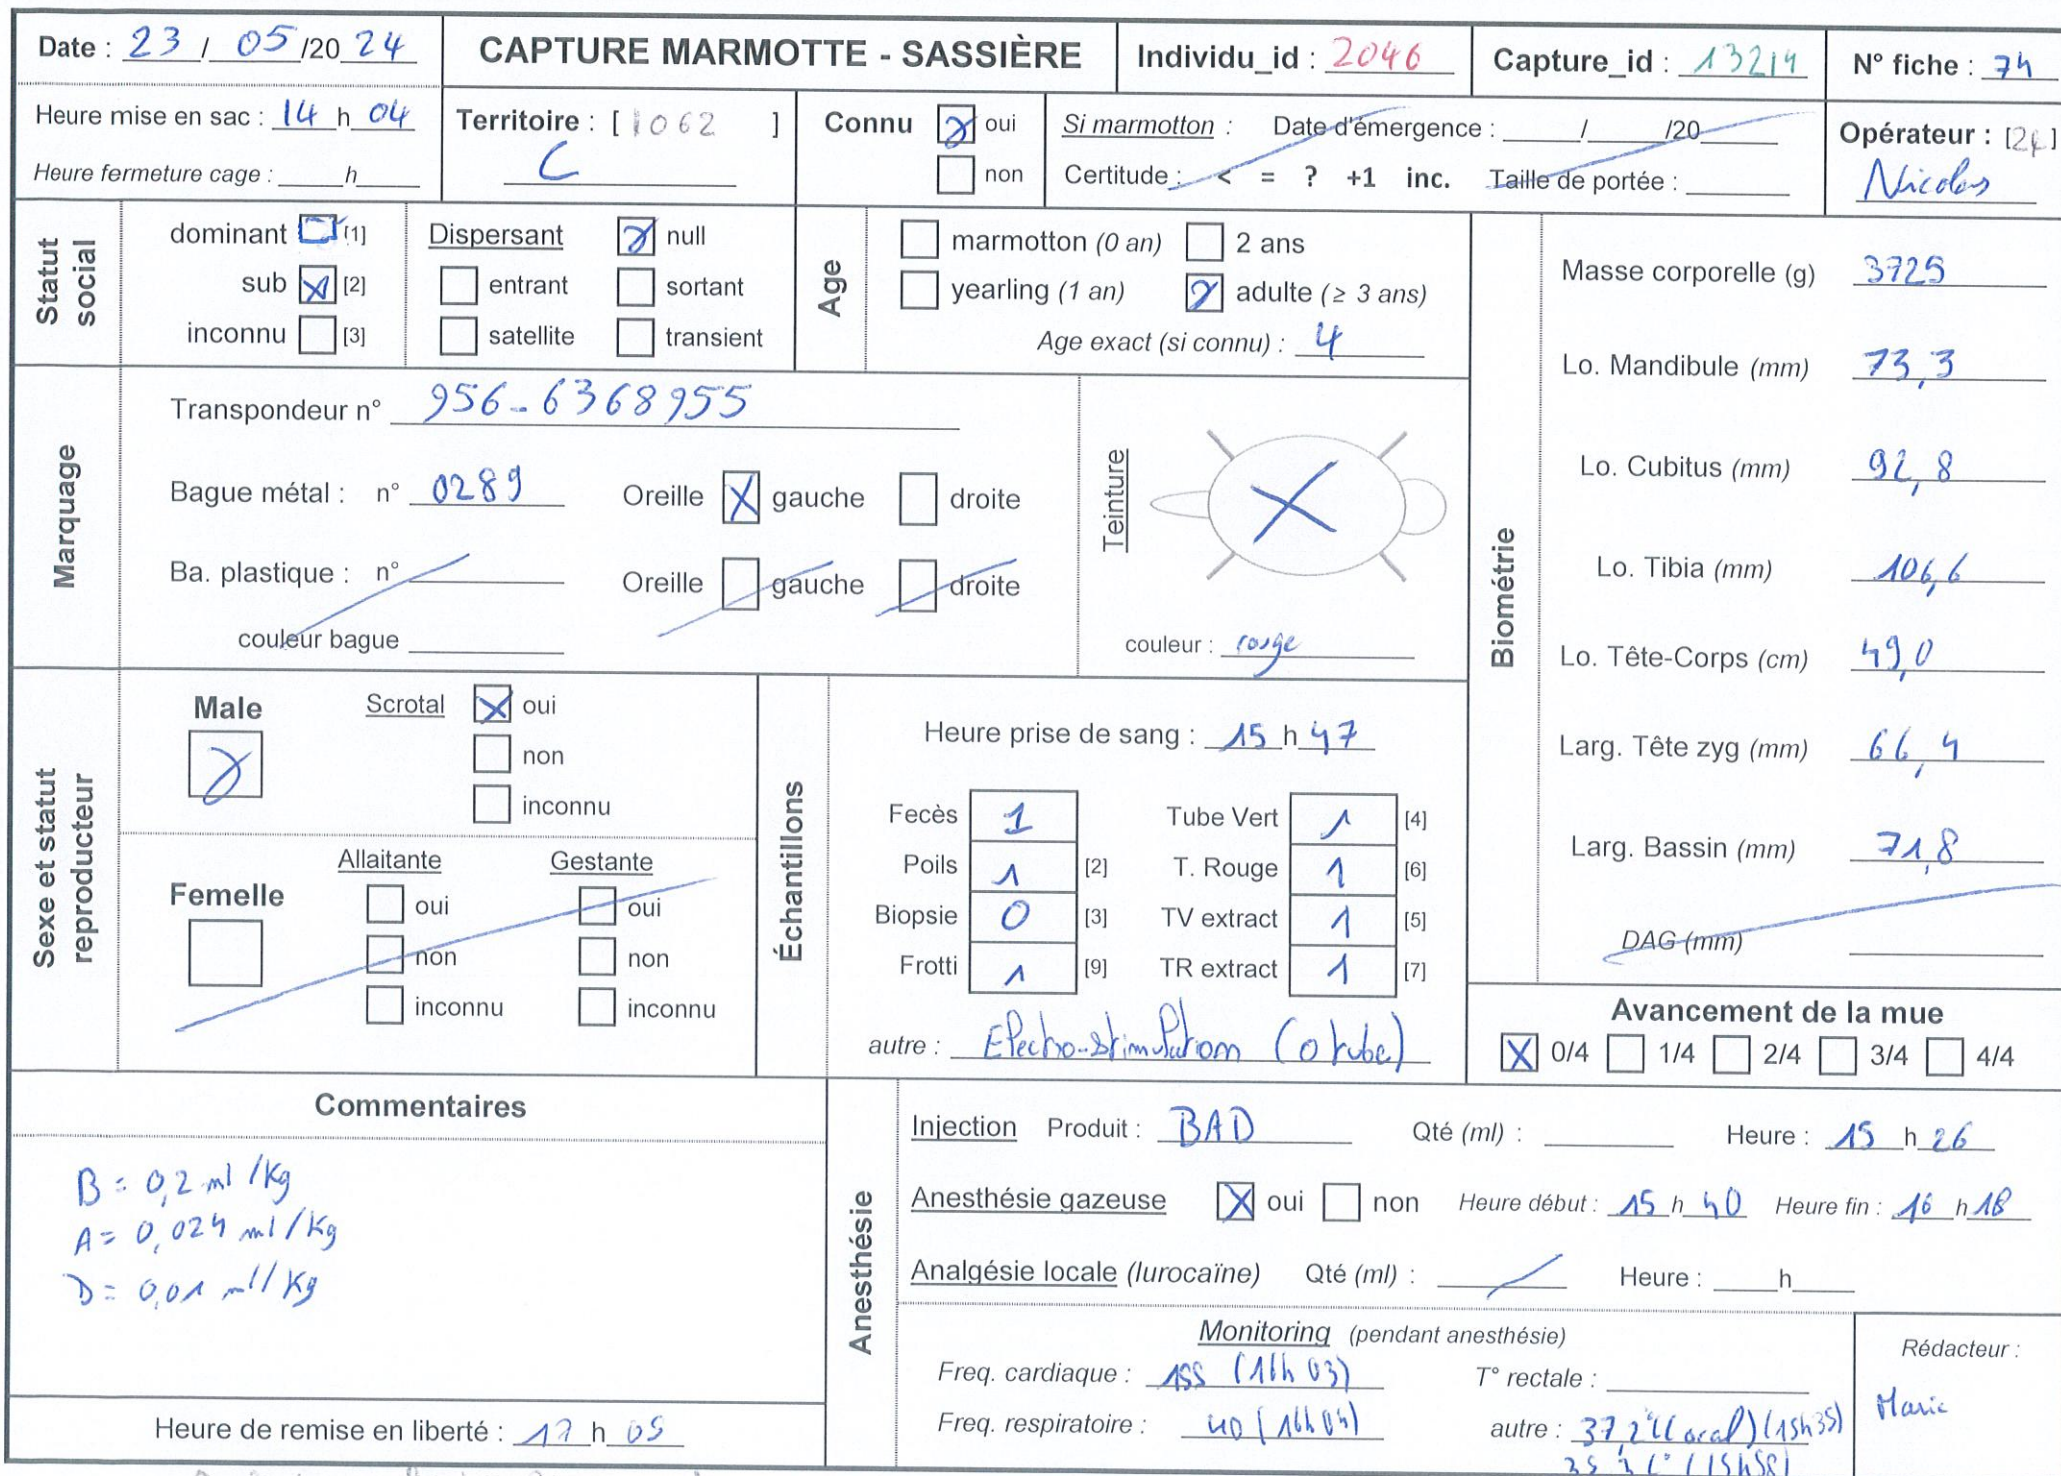 Date : 23 / 05 /20 24
CAPTURE MARMOTTE - SASSIÈRE
Individu_id : 2046
Capture_id : 13214
N° fiche : 74
Heure mise en sac : 14 h 04
Heure fermeture cage : ____h____
Territoire : [ 1062 ]
C
Connu oui
non
Si marmotton : Date d'émergence : ____/____/20____
Certitude : < = ? +1 inc. Taille de portée : ____
Opérateur : [24]
Nicolas
Statut social
dominant [1]
sub X [2]
inconnu [3]
Dispersant X null
entrant sortant
satellite transient
Age
marmotton (0 an) 2 ans
yearling (1 an) X adulte (≥ 3 ans)
Age exact (si connu) : 4
Marquage
Transpondeur n° 956-6368955
Bague métal : n° 0289 Oreille X gauche droite
Ba. plastique : n° ____ Oreille gauche droite
couleur bague ____
Teinture
X
couleur : rouge
Biométrie
Masse corporelle (g) 3725
Lo. Mandibule (mm) 73,3
Lo. Cubitus (mm) 92,8
Lo. Tibia (mm) 106,6
Lo. Tête-Corps (cm) 49,0
Larg. Tête zyg (mm) 66,4
Larg. Bassin (mm) 71,8
DAG (mm) ____
Sexe et statut reproducteur
Male X
Scrotal X oui
non
inconnu
Femelle
Allaitante Gestante
oui oui
non non
inconnu inconnu
Échantillons
Heure prise de sang : 15 h 47
Fecès 1 Tube Vert 1 [4]
Poils 1 [2] T. Rouge 1 [6]
Biopsie 0 [3] TV extract 1 [5]
Frotti 1 [9] TR extract 1 [7]
autre : Electro-stimulation (0 tube)
Avancement de la mue
X 0/4 1/4 2/4 3/4 4/4
Commentaires
B = 0,2 ml/kg
A = 0,024 ml/kg
D = 0,01 ml/kg
Heure de remise en liberté : 17 h 05
Anesthésie
Injection Produit : BAD Qté (ml) : ____ Heure : 15 h 26
Anesthésie gazeuse X oui non Heure début : 15 h 40 Heure fin : 16 h 18
Analgésie locale (lurocaïne) Qté (ml) : ____ Heure : ____h____
Monitoring (pendant anesthésie)
Freq. cardiaque : 155 (16h03) T° rectale : ____
Freq. respiratoire : 40 (16h04) autre : 37,2°C (oral) (15h35)
(15h58)
Rédacteur :
Marie